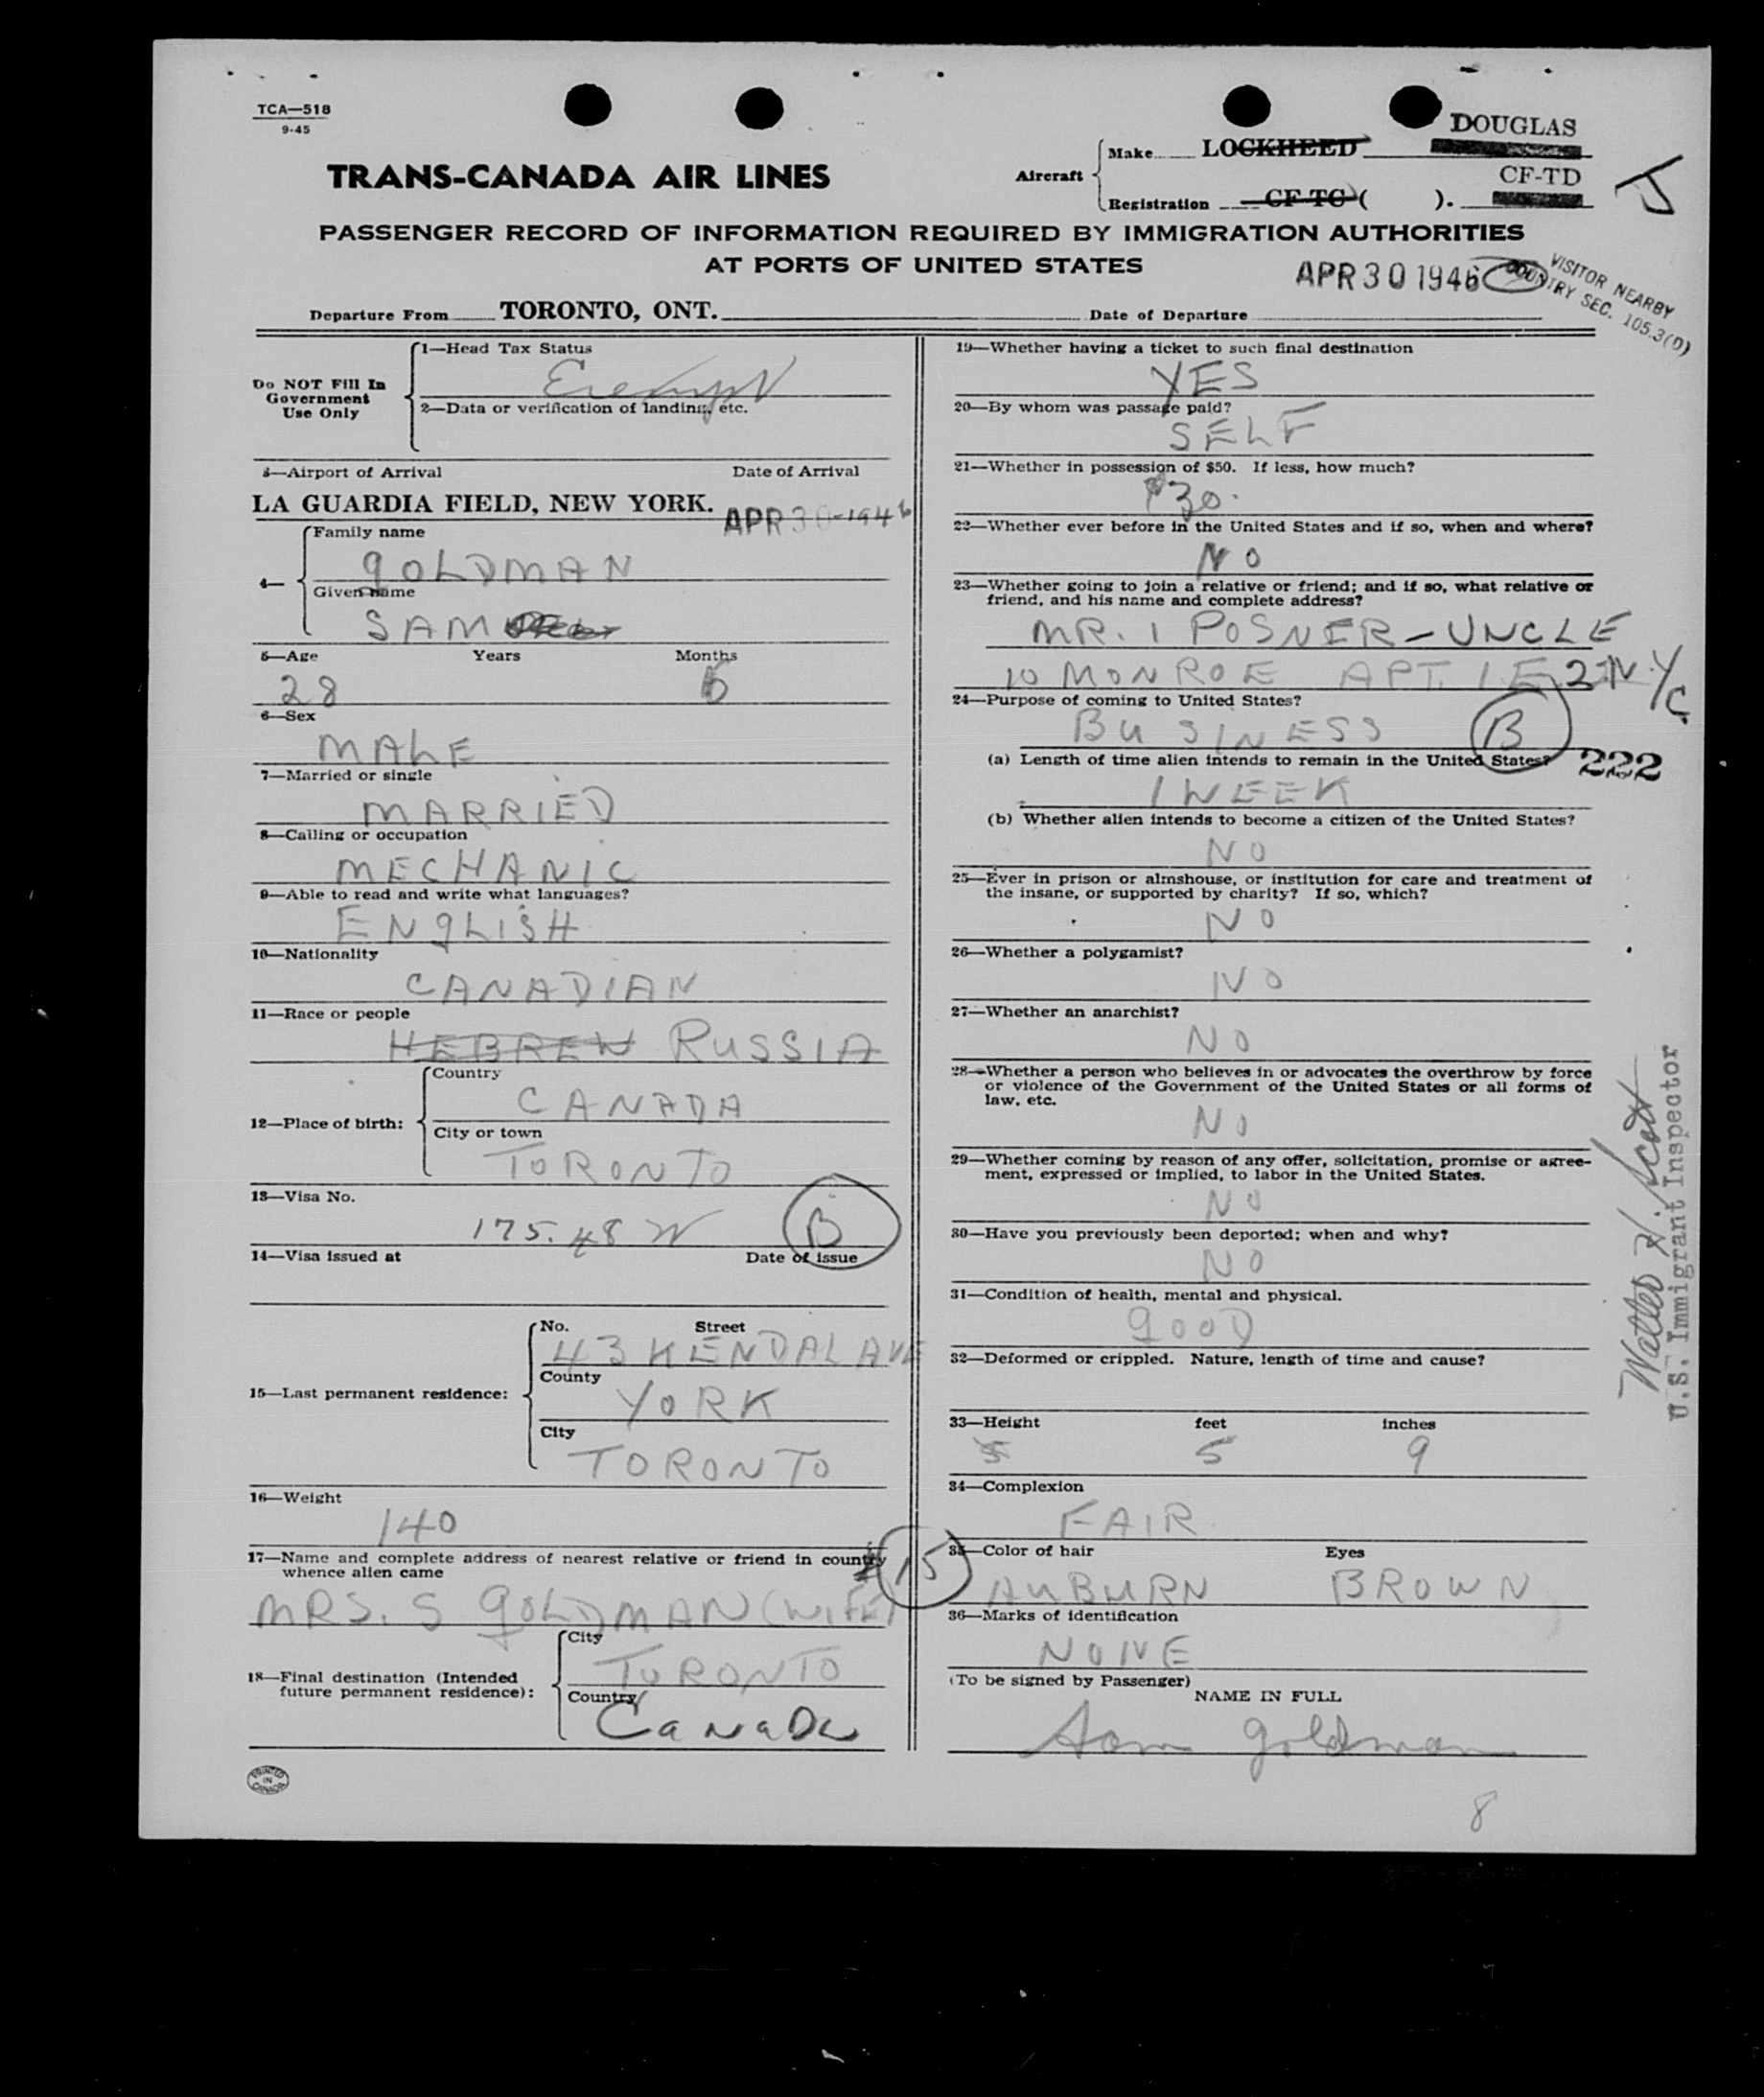 TCA—518
9-45
DOUGLAS
Aircraft
Make LOCKHEED
CF-TD
Registration CF-TC ( ).
J
TRANS-CANADA AIR LINES
PASSENGER RECORD OF INFORMATION REQUIRED BY IMMIGRATION AUTHORITIES
AT PORTS OF UNITED STATES
APR 30 1946
VISITOR NEARBY
COUNTRY SEC. 105.3(D)
Departure From TORONTO, ONT.
Date of Departure
Do NOT Fill In
Government
Use Only
1—Head Tax Status
Exempt
2—Data or verification of landing, etc.
3—Airport of Arrival Date of Arrival
LA GUARDIA FIELD, NEW YORK. APR 30 1946
4—
Family name
GOLDMAN
Given name
SAM
5—Age Years Months
28 6
6—Sex
MALE
7—Married or single
MARRIED
8—Calling or occupation
MECHANIC
9—Able to read and write what languages?
ENGLISH
10—Nationality
CANADIAN
11—Race or people
HEBREW RUSSIA
12—Place of birth:
Country
CANADA
City or town
TORONTO
13—Visa No.
175.48 W B
14—Visa issued at Date of issue
15—Last permanent residence:
No. Street
43 KENDAL AVE
County
YORK
City
TORONTO
16—Weight
140
17—Name and complete address of nearest relative or friend in country
whence alien came
MRS. S GOLDMAN (WIFE)
18—Final destination (Intended
future permanent residence):
City
TORONTO
Country
CANADA
PRINTED
IN
CANADA
19—Whether having a ticket to such final destination
YES
20—By whom was passage paid?
SELF
21—Whether in possession of $50. If less, how much?
$30.
22—Whether ever before in the United States and if so, when and where?
NO
23—Whether going to join a relative or friend; and if so, what relative or
friend, and his name and complete address?
MR. I POSNER – UNCLE
10 MONROE APT. 1E2 N.Y/C
24—Purpose of coming to United States?
BUSINESS B
(a) Length of time alien intends to remain in the United States?
222
1 WEEK
(b) Whether alien intends to become a citizen of the United States?
NO
25—Ever in prison or almshouse, or institution for care and treatment of
the insane, or supported by charity? If so, which?
NO
26—Whether a polygamist?
NO
27—Whether an anarchist?
NO
28—Whether a person who believes in or advocates the overthrow by force
or violence of the Government of the United States or all forms of
law, etc.
NO
29—Whether coming by reason of any offer, solicitation, promise or agree-
ment, expressed or implied, to labor in the United States.
NO
30—Have you previously been deported; when and why?
NO
31—Condition of health, mental and physical.
GOOD
32—Deformed or crippled. Nature, length of time and cause?
33—Height feet inches
5 5 9
34—Complexion
FAIR
15
35—Color of hair Eyes
AUBURN BROWN
36—Marks of identification
NONE
(To be signed by Passenger)
NAME IN FULL
Sam Goldman
8
Walter H. Scott
U.S. Immigrant Inspector